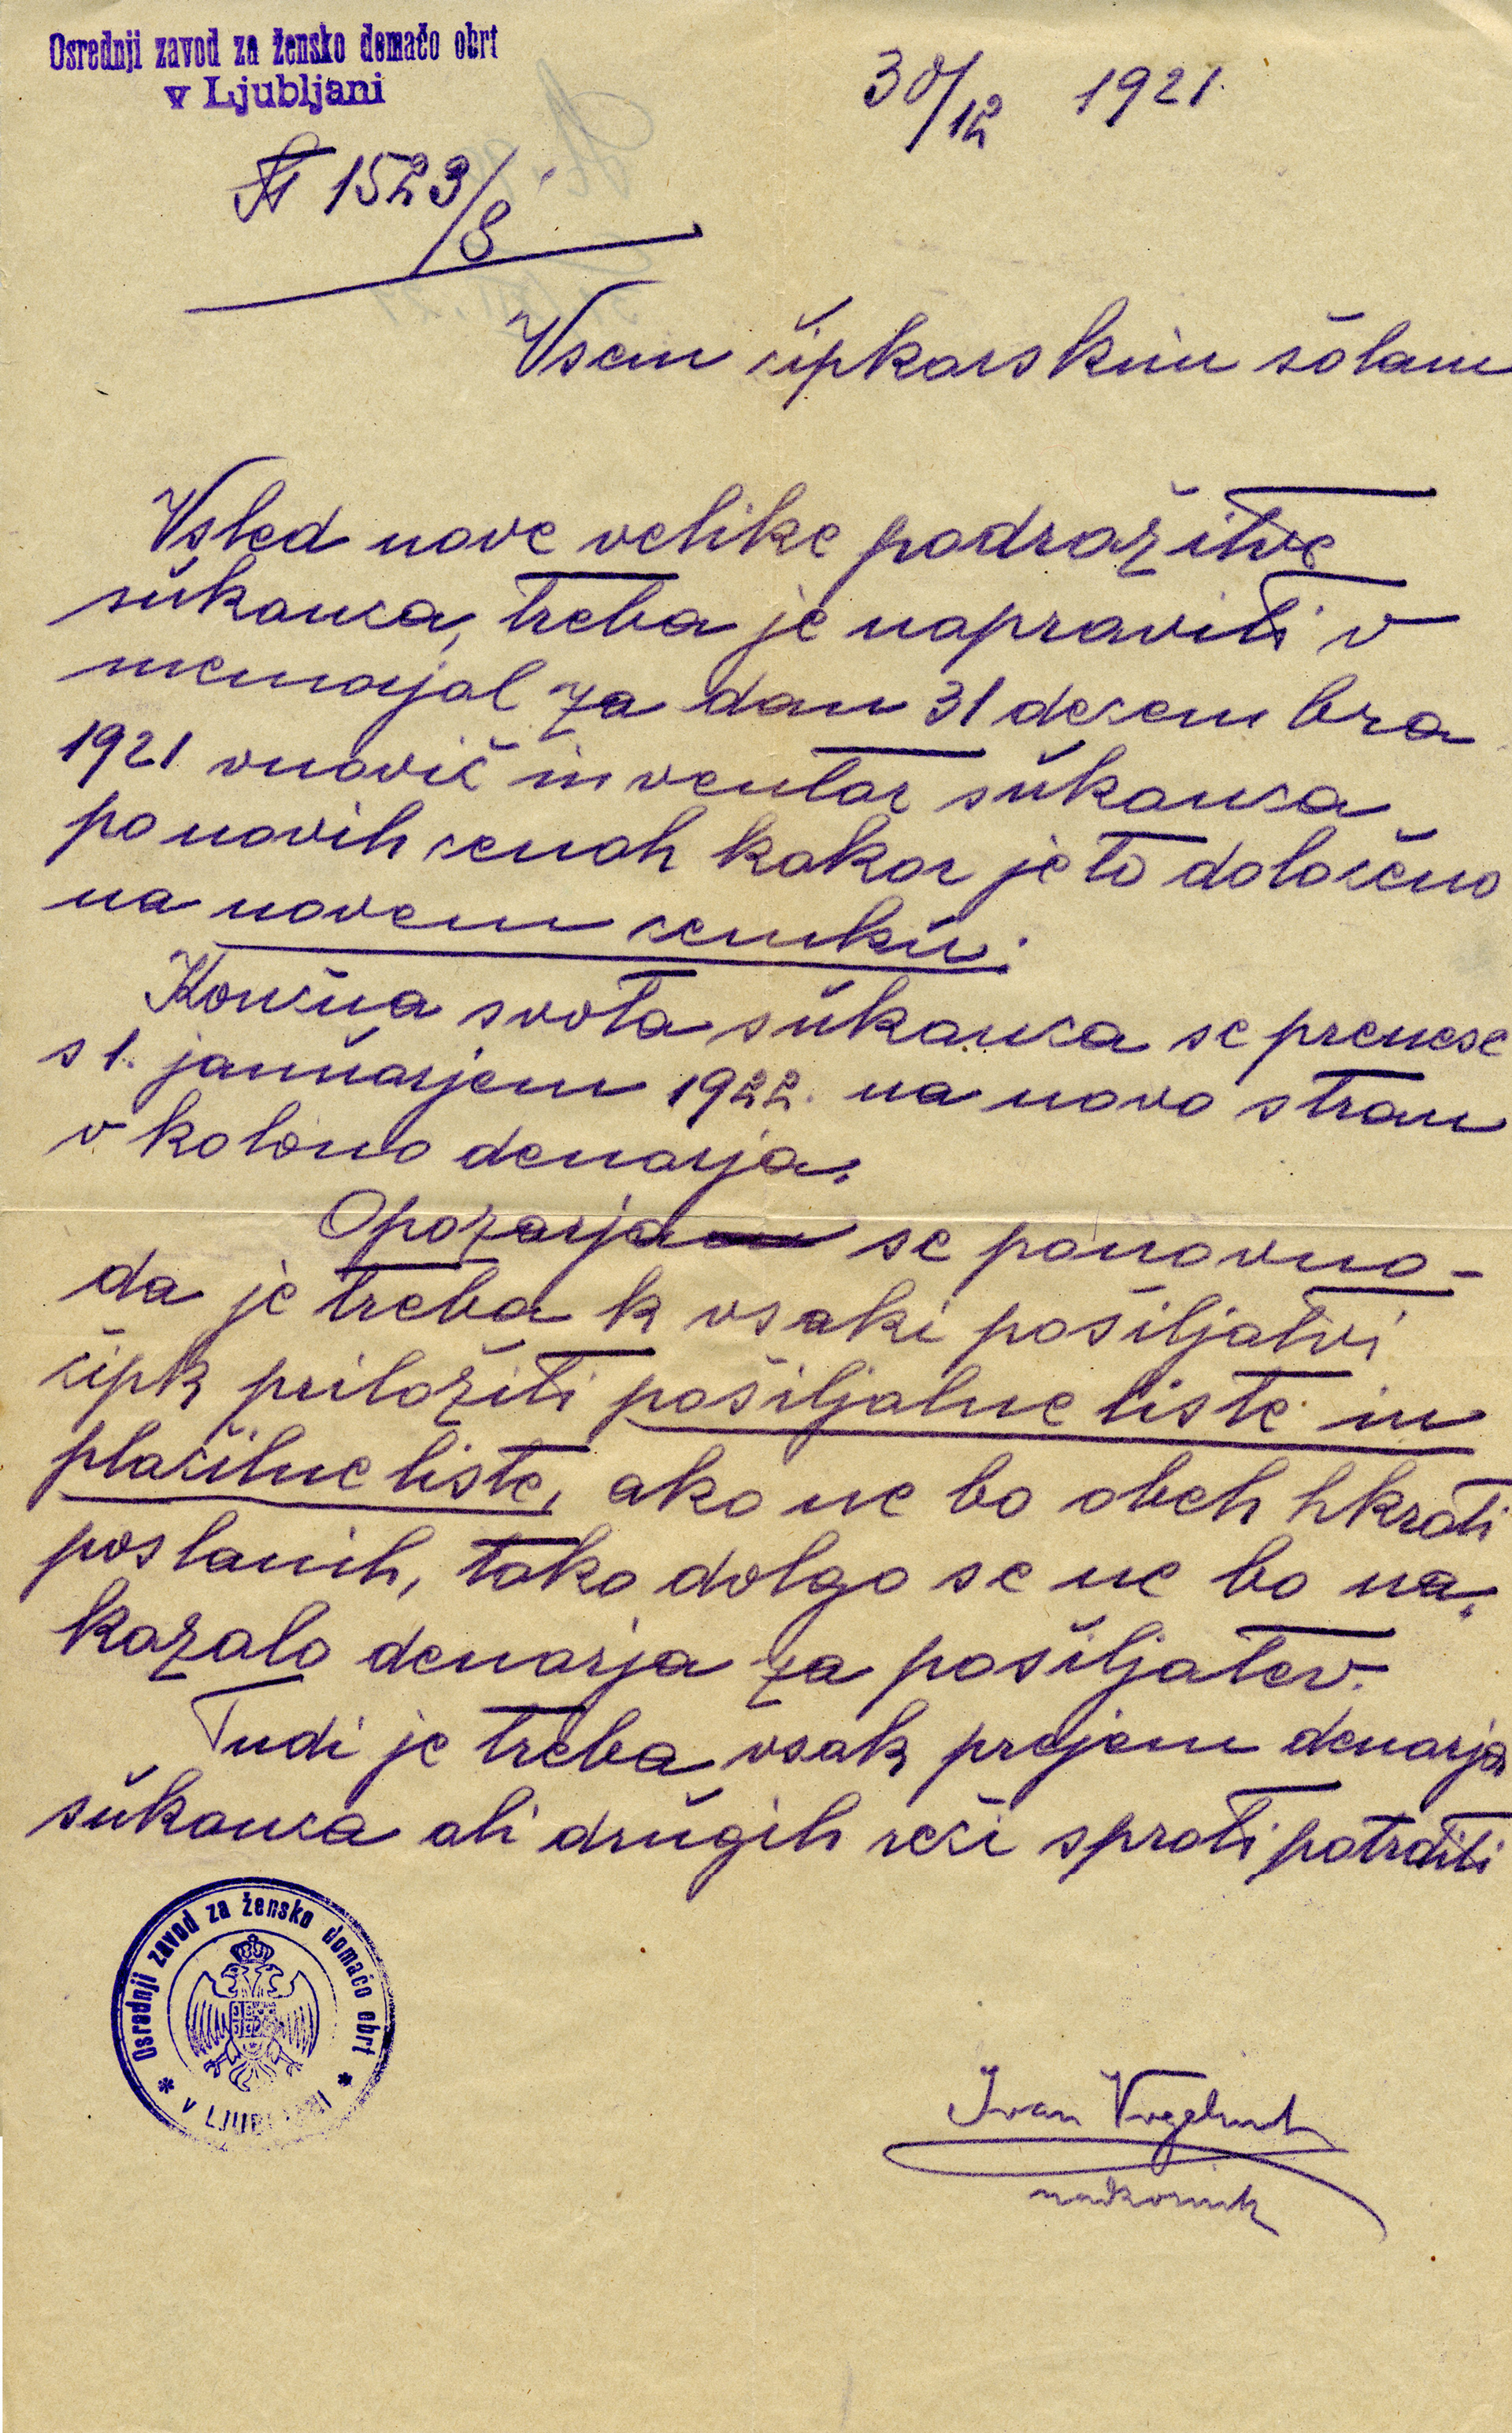 Osrednji zavod za žensko domačo obrt
v Ljubljani
30/12 1921.
№ 1523/8
Vsem čipkarskim šolam
Vsled nove velike podražitve
sukanca, treba je napraviti v
memorjal za dan 31 decembra
1921 vnovič inventar sukanca
po novih cenah kakor je to določeno
na novem ceniku.
Končna svota sukanca se prenese
s 1. januarjem 1922. na novo stran
v kolono denarja.
Opozarja se ponovno -
da je treba k vsaki pošiljatvi
čipk priložiti pošiljalne liste in
plačilne liste, ako ne bo obeh hkrati
poslanih, tako dolgo se ne bo na-
kazalo denarja za pošiljatev.
Tudi je treba vsak prejem denarja
sukanca ali drugih reči sproti potrditi
Osrednji zavod za žensko domačo obrt
* v LJUBLJANI *
Ivan Vogelnik
nadzornik